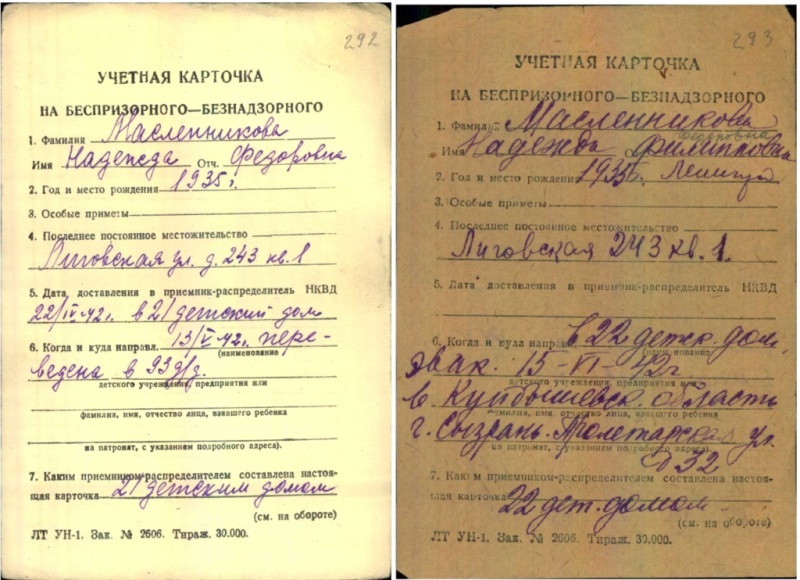 292
УЧЕТНАЯ КАРТОЧКА
НА БЕСПРИЗОРНОГО—БЕЗНАДЗОРНОГО
1. Фамилия Масленникова
Имя Надежда Отч. Федоровна
2. Год и место рождения 1935 г.
3. Особые приметы
4. Последнее постоянное местожительство
Лиговская ул. д. 243 кв. 1
5. Дата, доставления в приемник-распределитель НКВД
22/IV 42 г. в 21 детский дом
6. Когда и куда направл. 13/V 42 г. пере-
(наименование
ведена в 93 д/д.
детского учреждения, предприятия или
фамилия, имя, отчество лица, взявшего ребенка
на патронат, с указанием подробного адреса).
7. Каким приемником-распределителем составлена настоя-
щая карточка 21 детским домом
(см. на обороте)
ЛТ УН-1. Зак. № 2606. Тираж. 30.000.
293
УЧЕТНАЯ КАРТОЧКА
НА БЕСПРИЗОРНОГО—БЕЗНАДЗОРНОГО
1. Фамилия Масленникова
Федоровна
Имя Надежда От Филипповна
2. Год и место рождения 1935 г. Ленингр
3. Особые приметы
4. Последнее постоянное местожительство
Лиговская 243 кв. 1.
5. Дата доставления в приемник-распределитель НКВД
6. Когда и куда направл в 22 детск. дом,
(наименование
эвак. 15-VI-42 г
детского учреждения, предприятия или
в. Куйбышевск. область
фамилия, имя, отчество лица, взявшего ребенка
г. Сызрань. Пролетарская ул.
на патронат, с указанием подробного адреса).
д 32
7. Каким приемником-распределителем составлена настоя-
щая карточка 22 дет. домом
(см. на обороте)
ЛТ УН-1. Зак. № 2606. Тираж. 30.000.